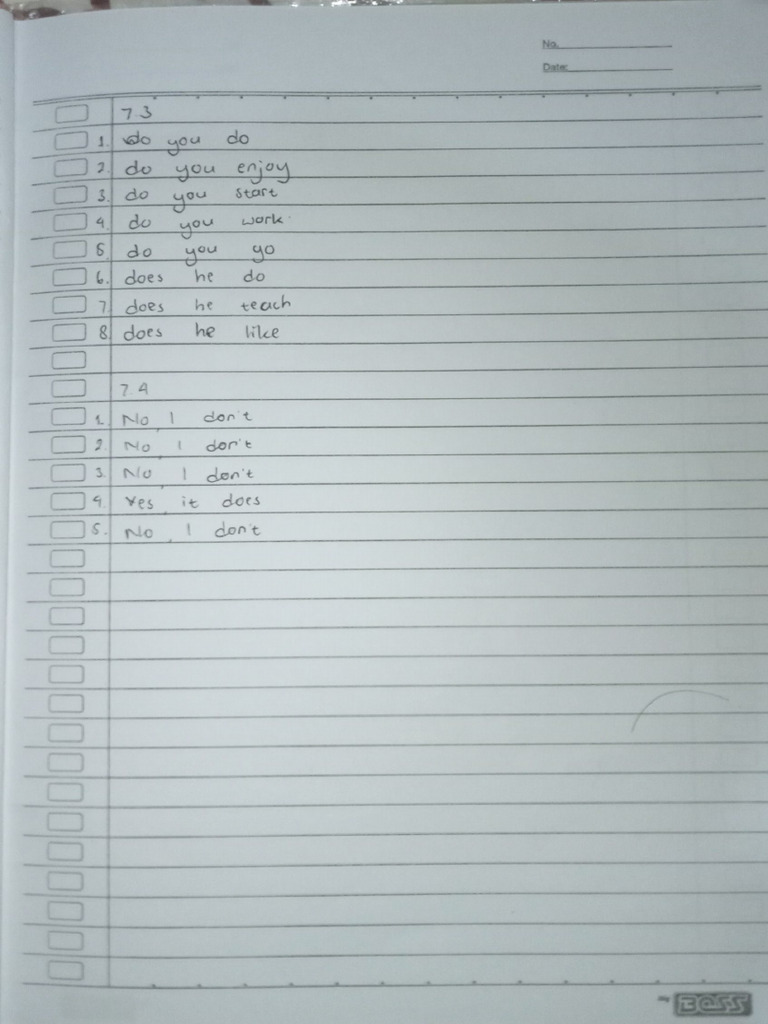 No.
Date:
7.3
1. do you do
2. do you enjoy
3. do you start
4. do you work
5. do you go
6. does he do
7. does he teach
8. does he like
7.4
1. No, I don't
2. No, I don't
3. No, I don't
4. Yes, it does
5. No, I don't
my BOSS